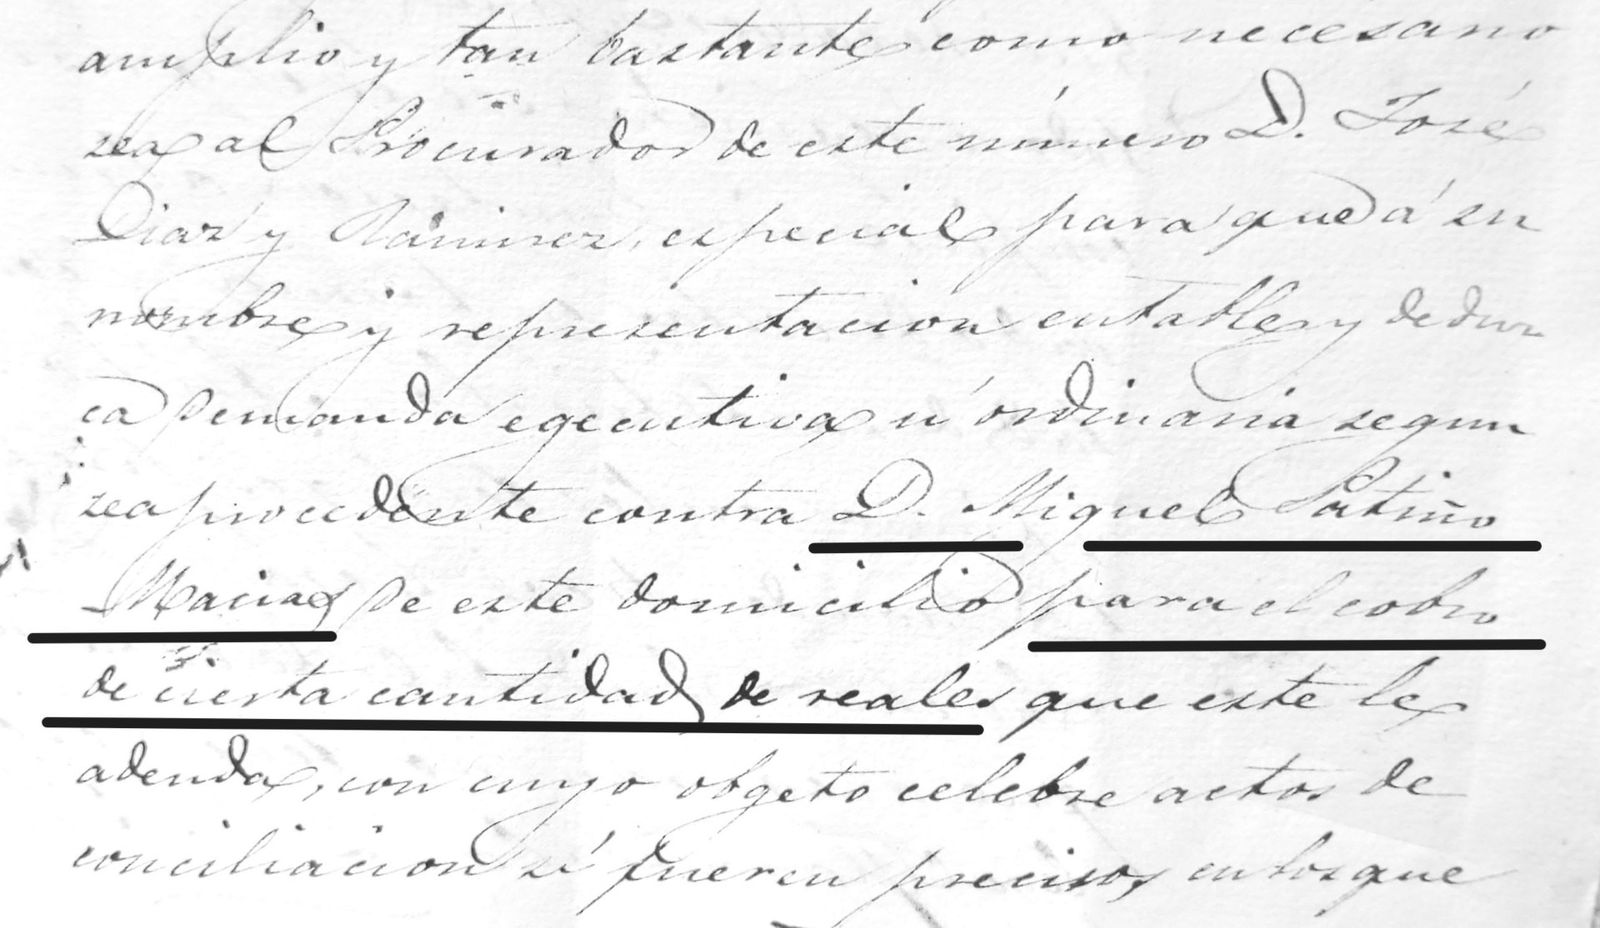 amplio y tan bastante como necesario
sea al Procurador de este número D. José
Diaz y Ramirez, especial para que á su
nombre y representacion entable y deduz
ca demanda egecutiva ú ordinaria segun
sea procedente contra D. Miguel Patiño
Macias de este domicilio para el cobro
de cierta cantidad de reales que este le
adeuda, con cuyo obgeto celebre actos de
conciliacion si fueren precisos, en los que